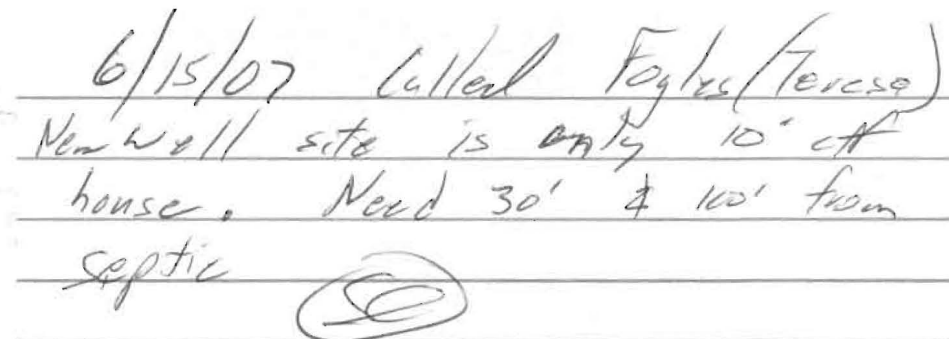 6/15/07 Called Fogles (Terese)
New Well site is only 10' off
house. Need 30' & 100' from
septic